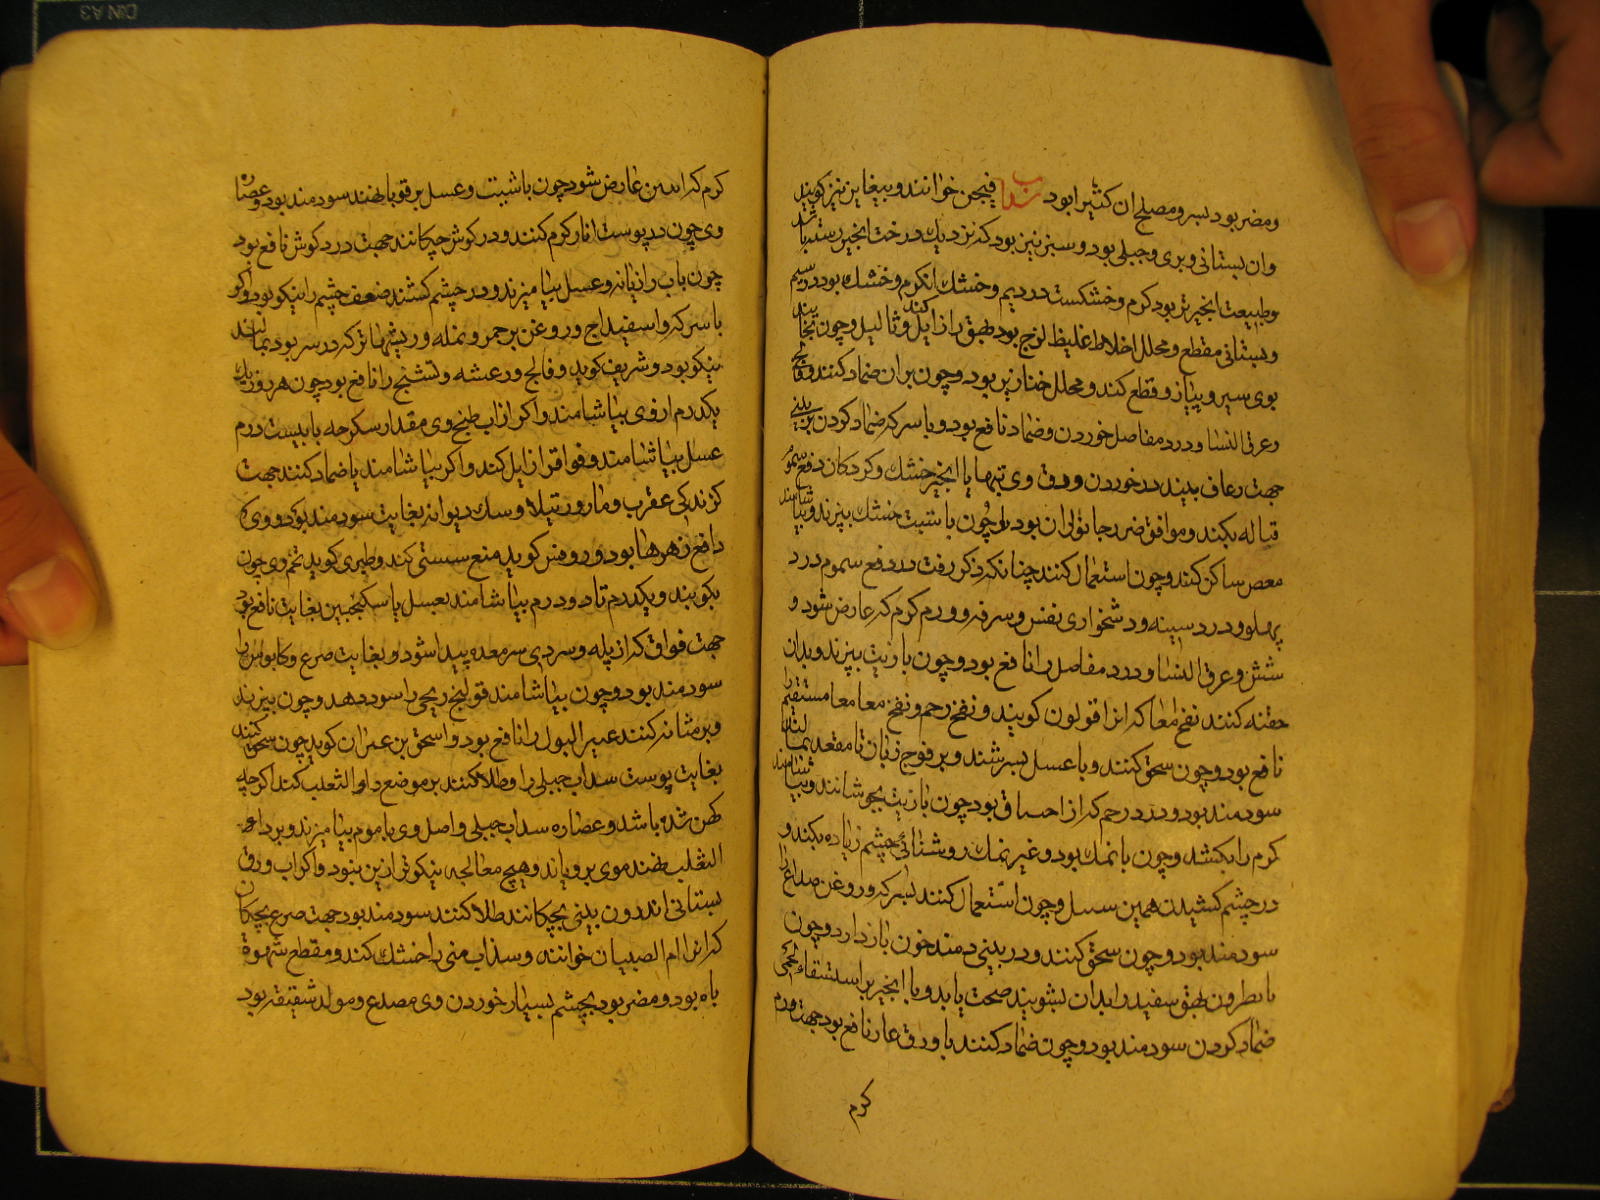 ومضر بود بسر و مصلح ان کثیرا بود سداب فیجن خوانند و بپغاین نیز کویند
وان بستانی و بری و جبلی بود و سبز نیز بود که نزدیک درخت انجیر رسته باشد
وطبیعت انجیر تر بود کرم و خشکست در دیم و خشک انکرم و خشک بود در سیم
وبستانی مقطع و محلل اخلاط غلیظ لوج بود بهق را زایل کند و ثالیل و چون بخایند
بوی سیر و پیاز و قطع کند و محلل خنازیر بود و چون بران ضماد کنند و فالج
وعرق النسا و درد مفاصل خوردن و ضماد نافع بود و با سرکه ضماد کردن بر بینی
جهت رعاف بدیند در خوردن ورق وی تنها یا انجیر خشک و کردکان دفع سموم
قتاله بکند و موافق ضرر جانوران بود و چون با شبت خشک بپزند و بیاشامند
معص ساکن کند و چون استعمال کنند چنانکه ذکر رفت در دفع سموم درد
پهلو و درد سینه و دشخواری نفس و سرفه و ورم کرم که عارض شود و
شش و عرق النسا و درد مفاصل را نافع بود و چون با زیت بپزند و بدان
حقنه کنند نفخ امعا که انرا قولون کویند و نفخ رحم و نفخ معا معا مستقیم را
نافع بود و چون سحق کنند و با عسل بسرشند و بر فوج زنان تا مقعد بمالند
سودمند بود و درد رحم که از احساق بود چون با زیت بجوشانند و بیاشامند
کرم را بکشد و چون با نمک بود و غیر نمک روشنائی چشم زیاده بکند و
در چشم کشیدن همین سبیل و چون استعمال کنند بسرکه و روغن صداع را
سودمند بود و چون سحق کنند و در بینی دمند خون باز دارد و چون
با نطرون بهق سفید را بدان بشویند صحت یابد و با انجیر بر استسقاء لحمی
ضماد کردن سودمند بود و چون ضماد کنند با ورق غار نافع بود جهت ورم
کرم
کرم که انثیین عارض شود چون با شبت و عسل بر قوبا نهند سودمند بود و عصاره
وی چون در پوست انار کرم کنند و در کوش چکانند جهت درد کوش نافع بود
چون باب رازیانه و عسل بیامیزند و در چشم کشند ضعف چشم را نیکو بود و اکر
با سرکه و اسفیداج و روغن بر جمر و نمله و ریشهای تر که در سر بود بمالند
نیکو بود و شریف کوید و فالج و رعشه و تشنج را نافع بود چون هر روز یک
یکدرم از وی بیاشامند و اکر از اب طبخ وی مقدار سکرجه با بیست درم
عسل بیاشامند و فواق زایل کند و اکر بیاشامند یا ضماد کنند جهت
کزندکی عقرب و مار و رتیلا و سک دیوانه بغایت سودمند بود و وی
دافع زهرها بود و روفس کوید منع سستی کند و طبری کوید تخم وی چون
بکوبند و یکدرم تا دو درم بیاشامند بعسل یا سکنجبین بغایت نافع بود
جهت فواق که از پله و سردی سر معده پیدا شود و بغایت صرع و کابوس را
سودمند بود و چون بیاشامند قولنج ریحی را سود دهد و چون بپزند
و بر مثانه کنند عسر البول را نافع بود و اسحق بن عمران کوید چون سحق کنند
بغایت پوست سداب جبلی را و طلا کنند بر موضع داء الثعلب کند اکرچه
کهن شده باشد و عصاره سداب جبلی و اصل وی با موم بیامیزند و بر داء
الثعلب نهند موی برویاند و هیچ معالجه نیکوتر ازین نبود و اکر اب ورق
بستانی اندرون بینی بچکانند طلا کنند سودمند بود جهت صرع بچکان
که انرا ام الصبیان خوانند و سداب منی را خشک کند و مقطع شهوة
باه بود و مضر بود بچشم بسیار خوردن وی مصدع و مولد شقیقه بود